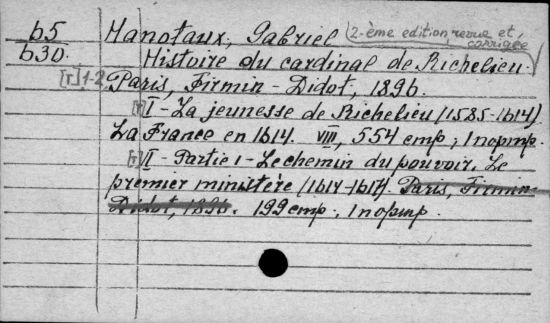 65 Hanotaux, Gabriel (2-ème edition revue et corrigée
630. Histoire du cardinal de Richelieu.
[I] 1-2 Paris, Firmin-Didot, 1896.
[I] I - La jeunesse de Richelieu (1585-1614).
La France en 1614. VIII, 554 стр; 1 порtр.
II - Partie 1 - Le chemin du pouvoir. Le
premier ministère (1614-1617). Paris, Firmin-
Didot, 1896. 199 стр., 1 порtр.